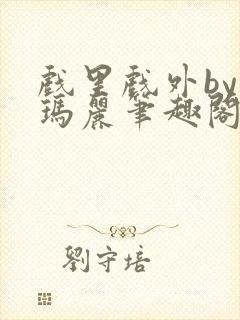 戲里戲外by
瑪麗筆趣閣
劉守培